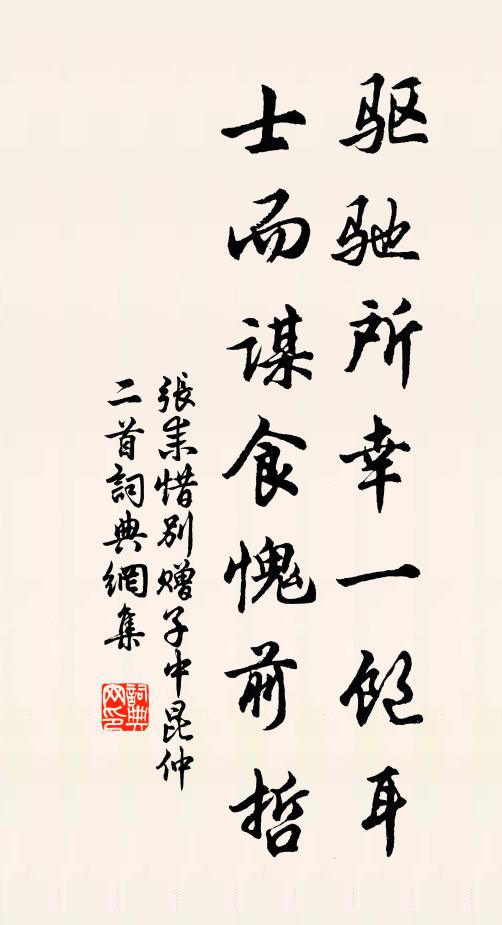 驱驰所幸一饱耳
士而谋食愧前哲
張耒惜别赠子中昆仲
二首詞典網集
詞典
网印